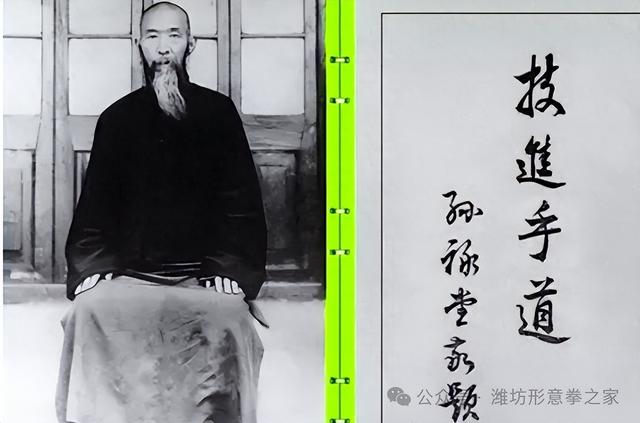 技進乎道
孫祿堂敬題
公众号 · 潍坊形意拳之家